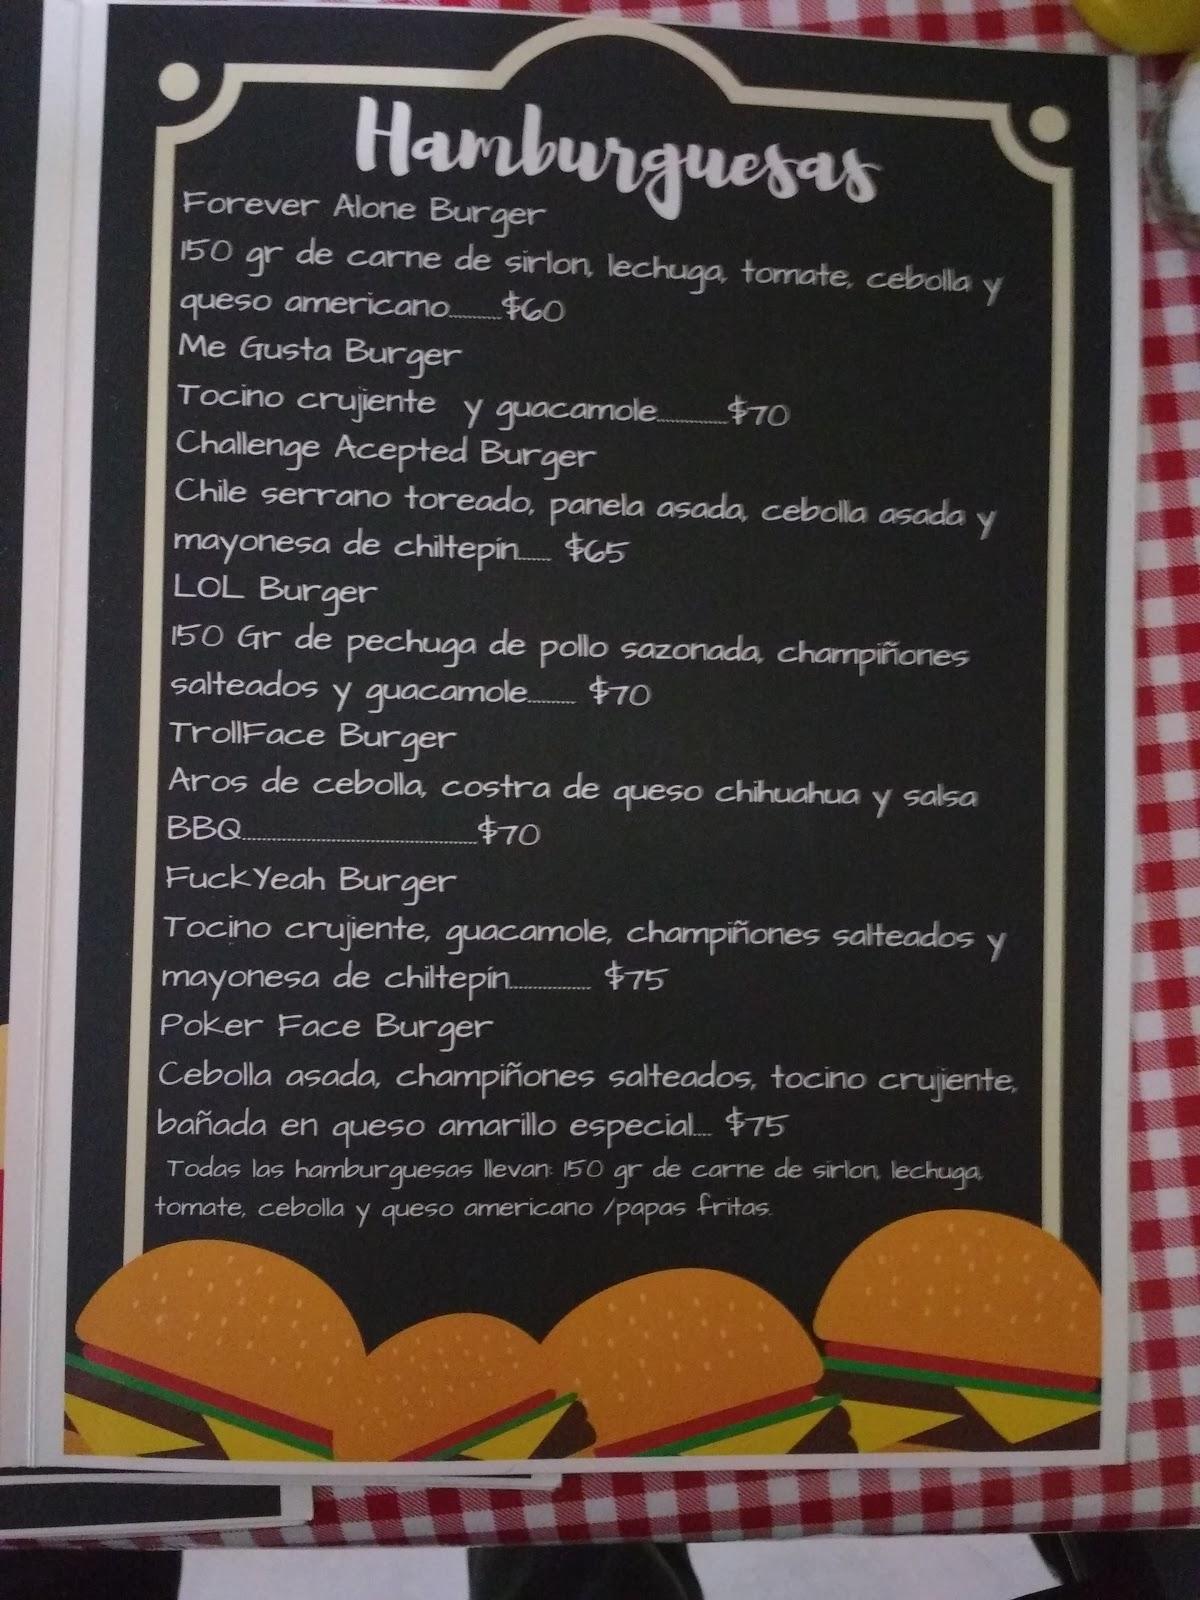 Hamburguesas
Forever Alone Burger
150 gr de carne de sirlon, lechuga, tomate, cebolla y
queso americano..........$60
Me Gusta Burger
Tocino crujiente y guacamole..............$70
Challenge Acepted Burger
Chile serrano toreado, panela asada, cebolla asada y
mayonesa de chiltepín...... $65
LOL Burger
150 Gr de pechuga de pollo sazonada, champiñones
salteados y guacamole.......... $70
TrollFace Burger
Aros de cebolla, costra de queso chihuahua y salsa
BBQ................................................$70
FuckYeah Burger
Tocino crujiente, guacamole, champiñones salteados y
mayonesa de chiltepín................. $75
Poker Face Burger
Cebolla asada, champiñones salteados, tocino crujiente,
bañada en queso amarillo especial.... $75
Todas las hamburguesas llevan: 150 gr de carne de sirlon, lechuga,
tomate, cebolla y queso americano /papas fritas.